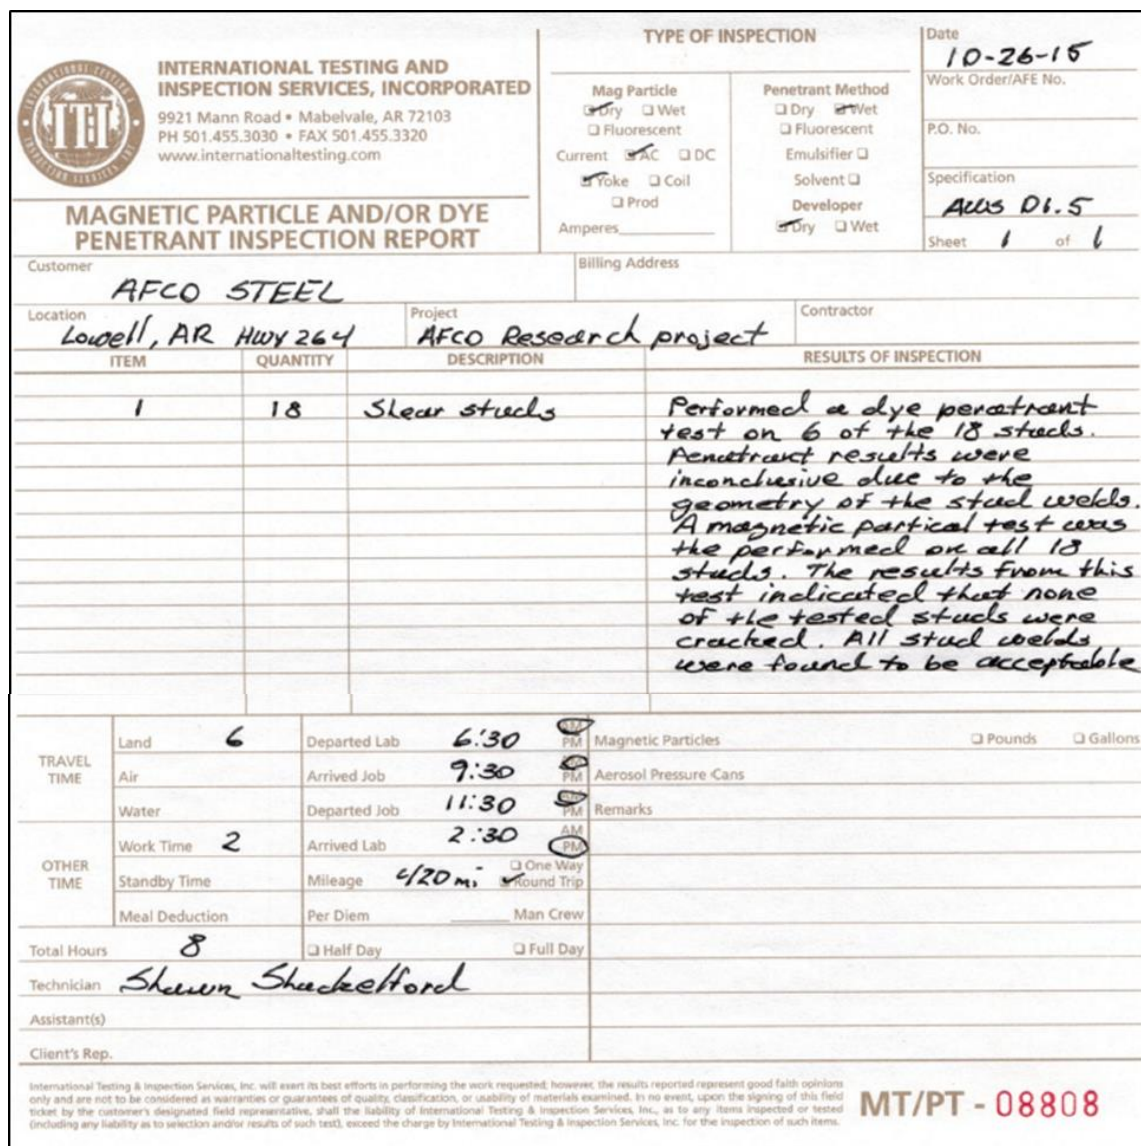 INTERNATIONAL TESTING AND
INSPECTION SERVICES, INCORPORATED
9921 Mann Road • Mabelvale, AR 72103
PH 501.455.3030 • FAX 501.455.3320
www.internationaltesting.com
INTERNATIONAL TESTING &
INSPECTION SERVICES INC
ITI
MAGNETIC PARTICLE AND/OR DYE
PENETRANT INSPECTION REPORT
TYPE OF INSPECTION
Mag Particle
Dry Wet
Fluorescent
Current AC DC
Yoke Coil
Prod
Amperes
Penetrant Method
Dry Wet
Fluorescent
Emulsifier
Solvent
Developer
Dry Wet
Date
10-26-15
Work Order/AFE No.
P.O. No.
Specification
AWS D1.5
Sheet 1 of 1
Customer
AFCO STEEL
Billing Address
Location
Lowell, AR HWY 264
Project
AFCO Research project
Contractor
ITEM QUANTITY DESCRIPTION RESULTS OF INSPECTION
1 18 Shear studs
Performed a dye penatrant
test on 6 of the 18 studs.
Penatrant results were
inconclusive due to the
geometry of the stud welds.
A magnetic partical test was
the performed on all 18
studs. The results from this
test indicated that none
of the tested studs were
cracked. All stud welds
were found to be acceptable
TRAVEL
TIME
Land 6 Departed Lab 6:30 AM PM
Air Arrived Job 9:30 AM PM
Water Departed Job 11:30 AM PM
OTHER
TIME
Work Time 2 Arrived Lab 2:30 AM PM
Standby Time Mileage 420 mi One Way Round Trip
Meal Deduction Per Diem Man Crew
Total Hours 8 Half Day Full Day
Technician Shawn Shackelford
Assistant(s)
Client's Rep.
Magnetic Particles Pounds Gallons
Aerosol Pressure Cans
Remarks
International Testing & Inspection Services, Inc. will exert its best efforts in performing the work requested; however, the results reported represent good faith opinions
only and are not to be considered as warranties or guarantees of quality, classification, or usability of materials examined. In no event, upon the signing of this field
ticket by the customer's designated field representative, shall the liability of International Testing & Inspection Services, Inc., as to any items inspected or tested
(including any liability as to selection and/or results of such test), exceed the charge by International Testing & Inspection Services, Inc. for the inspection of such items.
MT/PT - 08808